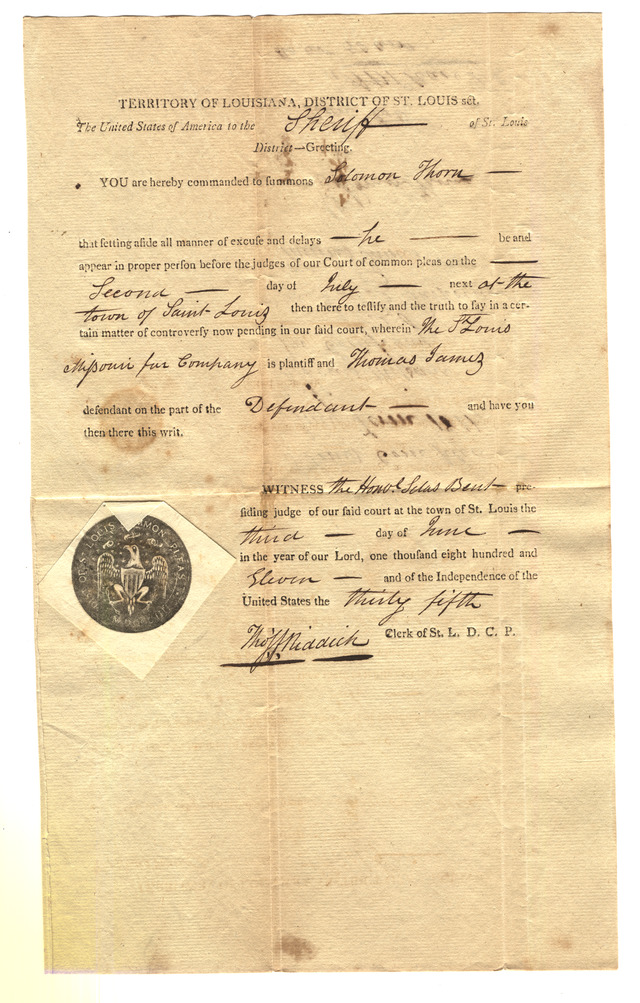 TERRITORY OF LOUISIANA, DISTRICT OF ST. LOUIS sct.
The United States of America to the Sheriff of St. Louis
District—Greeting.
YOU are hereby commanded to summons Solomon Thorn —
that setting aside all manner of excuse and delays — he — be and
appear in proper person before the judges of our Court of common pleas on the —
Second — day of July — next at the
town of Saint Louis then there to testify and the truth to say in a cer-
tain matter of controversy now pending in our said court, wherein The St Louis
Missouri fur Company is plantiff and Thomas James
defendant on the part of the Defendant — and have you
then there this writ.
WITNESS the Honbl Silas Bent — pre-
siding judge of our said court at the town of St. Louis the
third — day of June —
in the year of our Lord, one thousand eight hundred and
Eleven — and of the Independence of the
United States the thirty fifth
Thos F Riddick Clerk of St. L. D. C. P.
ST. LOUIS MON PLEAS